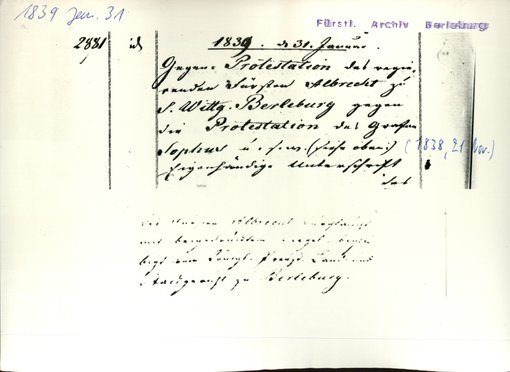 1839 Jan. 31
Fürstl. Archiv Berleburg
2881 id 1839. d 31. Januar.
Gegen-Protestation des regie-
renden Fürsten Albrecht zu
S. Wittg. Berleburg gegen
die Protestation des Grafen
u. s. w. (siehe oben) (1838, 21. Nov.)
Eigenhändige Unterschrift
des
Albrecht
mit beigedrucktem
Königl. Preuß. Land und
Stadtgericht zu Berleburg.